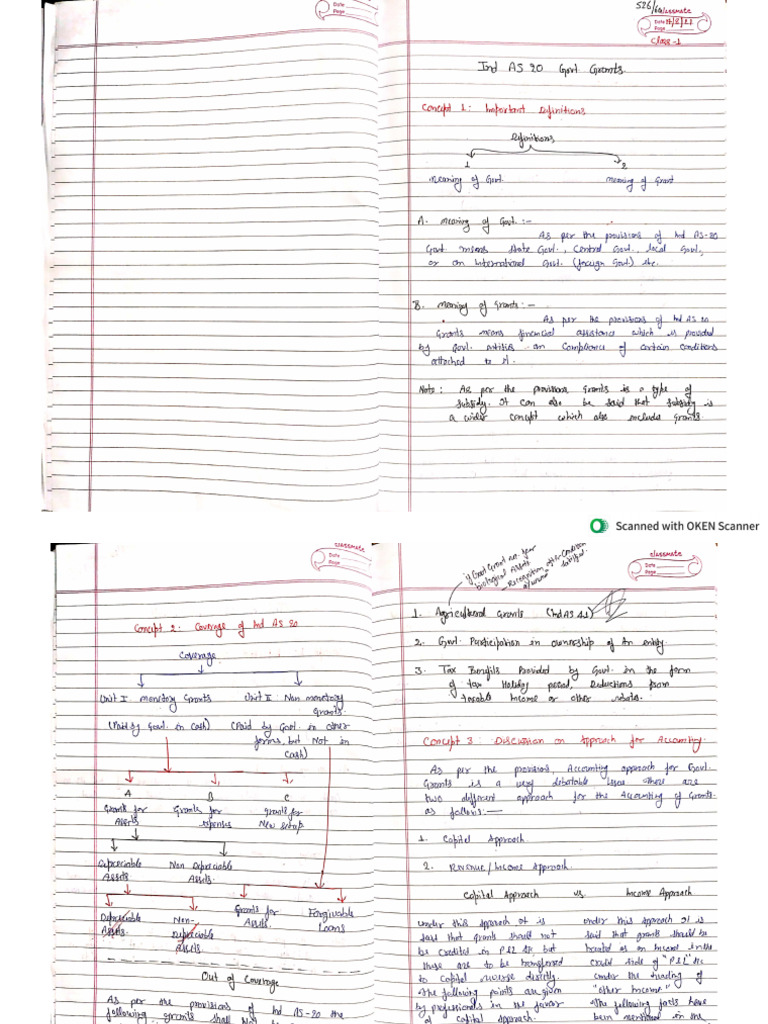 classmate
Date
Page
526/
classmate
Date
Page
Class-1
Ind AS 20 Govt Grants.
Concept 1: Important Definitions
Definitions
1
2
Meaning of Govt.
Meaning of Grant
A. Meaning of Govt. :-
As per the provisions of Ind AS-20
Govt. means State Govt., Central Govt., local Govt.,
or an International Govt. (foreign Govt) etc.
B. Meaning of Grants: -
As per the provisions of Ind AS 20
Grants means financial assistance which is provided
by Govt. entities on Compliance of certain conditions
attached to it.
Note: As per the provisions Grants is a type of
subsidy. It can also be said that subsidy is
a wider concept which also includes Grants
Scanned with OKEN Scanner
classmate
Date
Page
Concept 2: Coverage of Ind AS 20
Coverage
Unit I Monetary Grants
Unit II Non monetary
Grants.
(Paid by Govt. in cash)
(Paid by Govt. in other
forms, but Not in
Cash)
A
B
C
Grants for
Assets
Grants for
expenses
grants for
New setup
Depreciable
Assets
Non Depreciable
Assets.
Depreciable
Assets.
Non-
Depreciable
Assets
Grants for
Assets.
Forgivable
Loans
Out of Coverage
As per the provisions of Ind AS-20 the
following grants shall Not
classmate
Date
Page
if Govt Grant are
biological Assets
Recognition after Condition
satisfied.
1. Agricultural Grants (Ind AS 41)
2. Govt. Participation in ownership of an entity
3. Tax Benefits Provided by Govt. in the form
of tax Holiday period, Deductions from
taxable Income or other rebates.
Concept 3: Discussion on Approach for Accounting.
As per the provisions, Accounting approach for Govt.
Grants is a very debatable issue. There are
two different approach for the Accounting of Grants
as follows:—
1. Capital Approach
2. Revenue / Income Approach.
Capital Approach vs. Income Approach
Under this Approach it is
said that grants should not
be credited in P&L A/c but
these are to be transferred
to Capital reserve directly.
The following points are given
by professionals in the favor
of Capital Approach.
Under this Approach it is
said that grants should be
treated as an Income in the
credit side of "P&L" A/c
under the heading of
"Other Income".
The following facts have
been mentioned in the